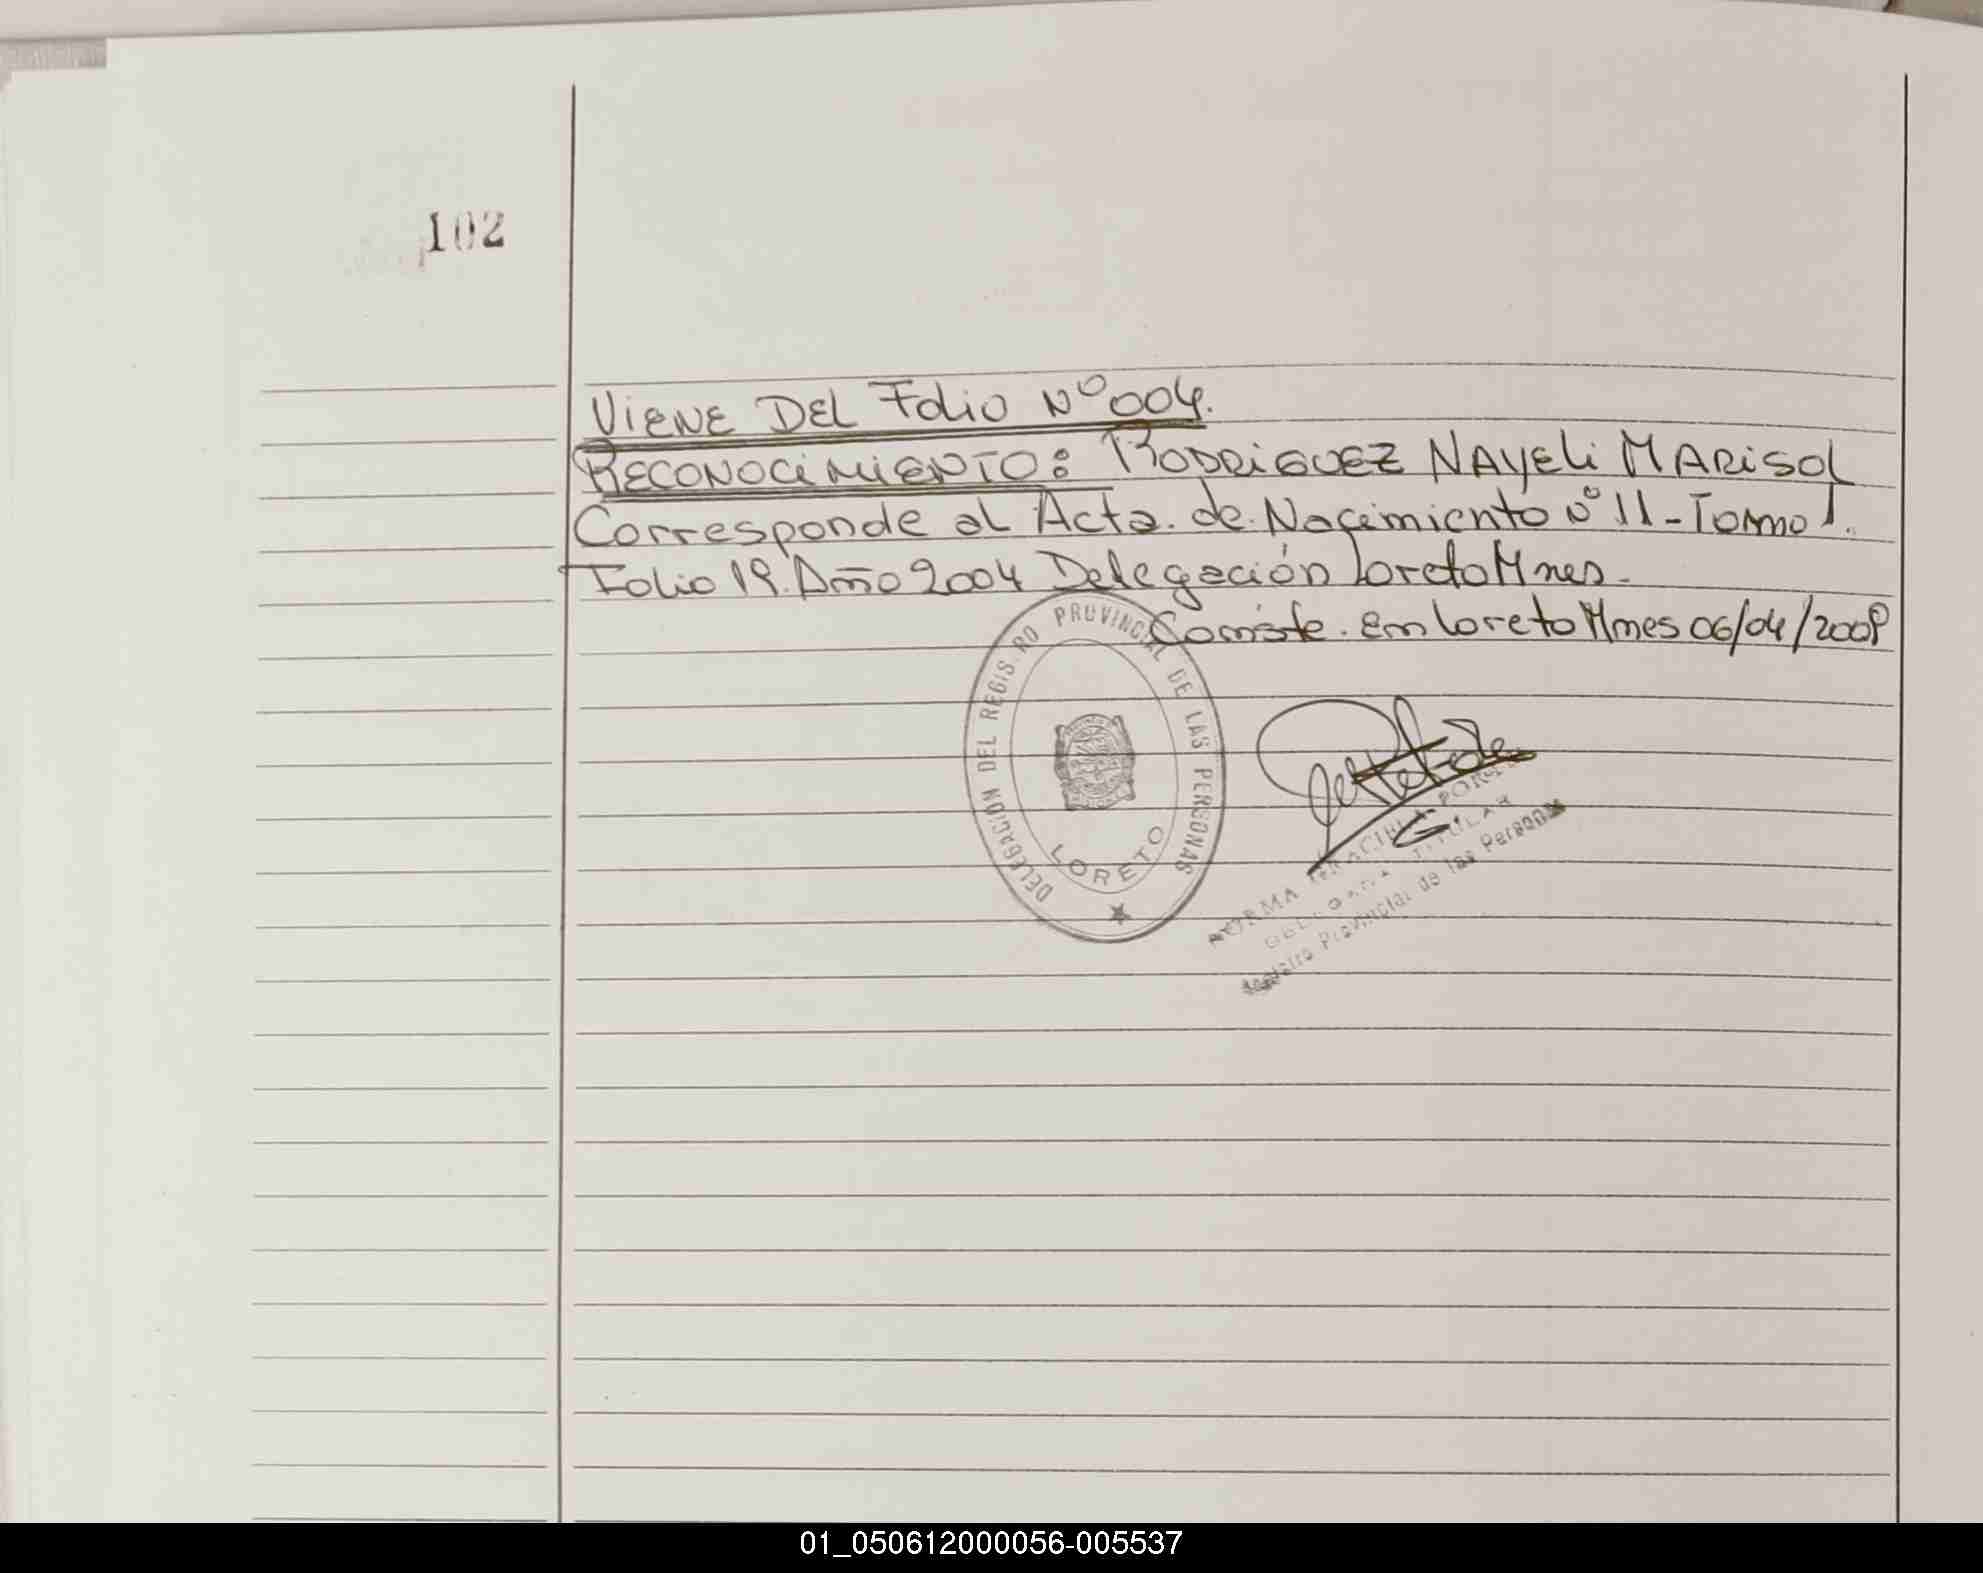 102
VIENE DEL Folio Nº 004.
RECONOCIMIENTO: RODRIGUEZ NAYELI MARISOL
Corresponde al Acta. de. Nacimiento Nº 11 - Tomo I.
Folio 19. Año 2004 Delegación Loreto Mnes.
Conste. En Loreto Mnes 06/04/2009
DELEGACION DEL REGISTRO PROVINCIAL DE LAS PERSONAS
LORETO
NORMA
TITULAR
Registro Provincial de las Personas
01_050612000056-005537